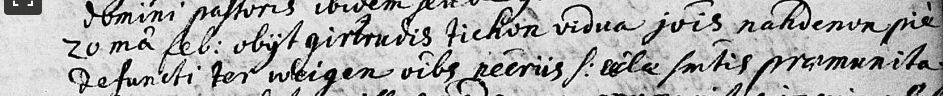 domini pastoris ibidem
20 mâ feb: obijt girtrudis tichon vidua jõis nandenon piè
defuncti ter weigen oībs necriis s: eclæ smtis præmunita